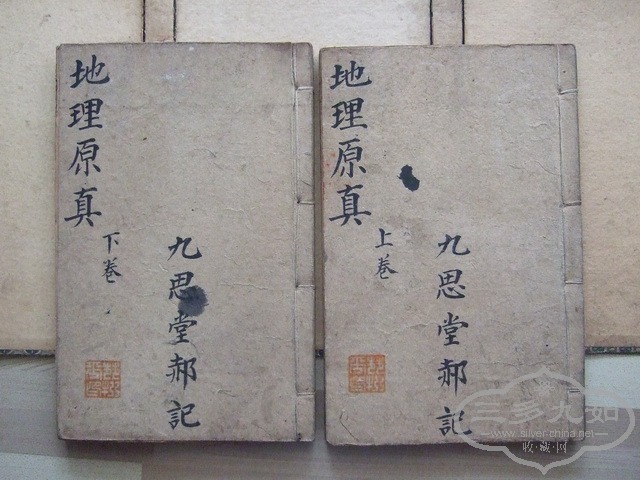 地理原真
上卷
九思堂郝記
地理原真
下卷
九思堂郝記
三多九如
www.silver-china.net
收·藏·网